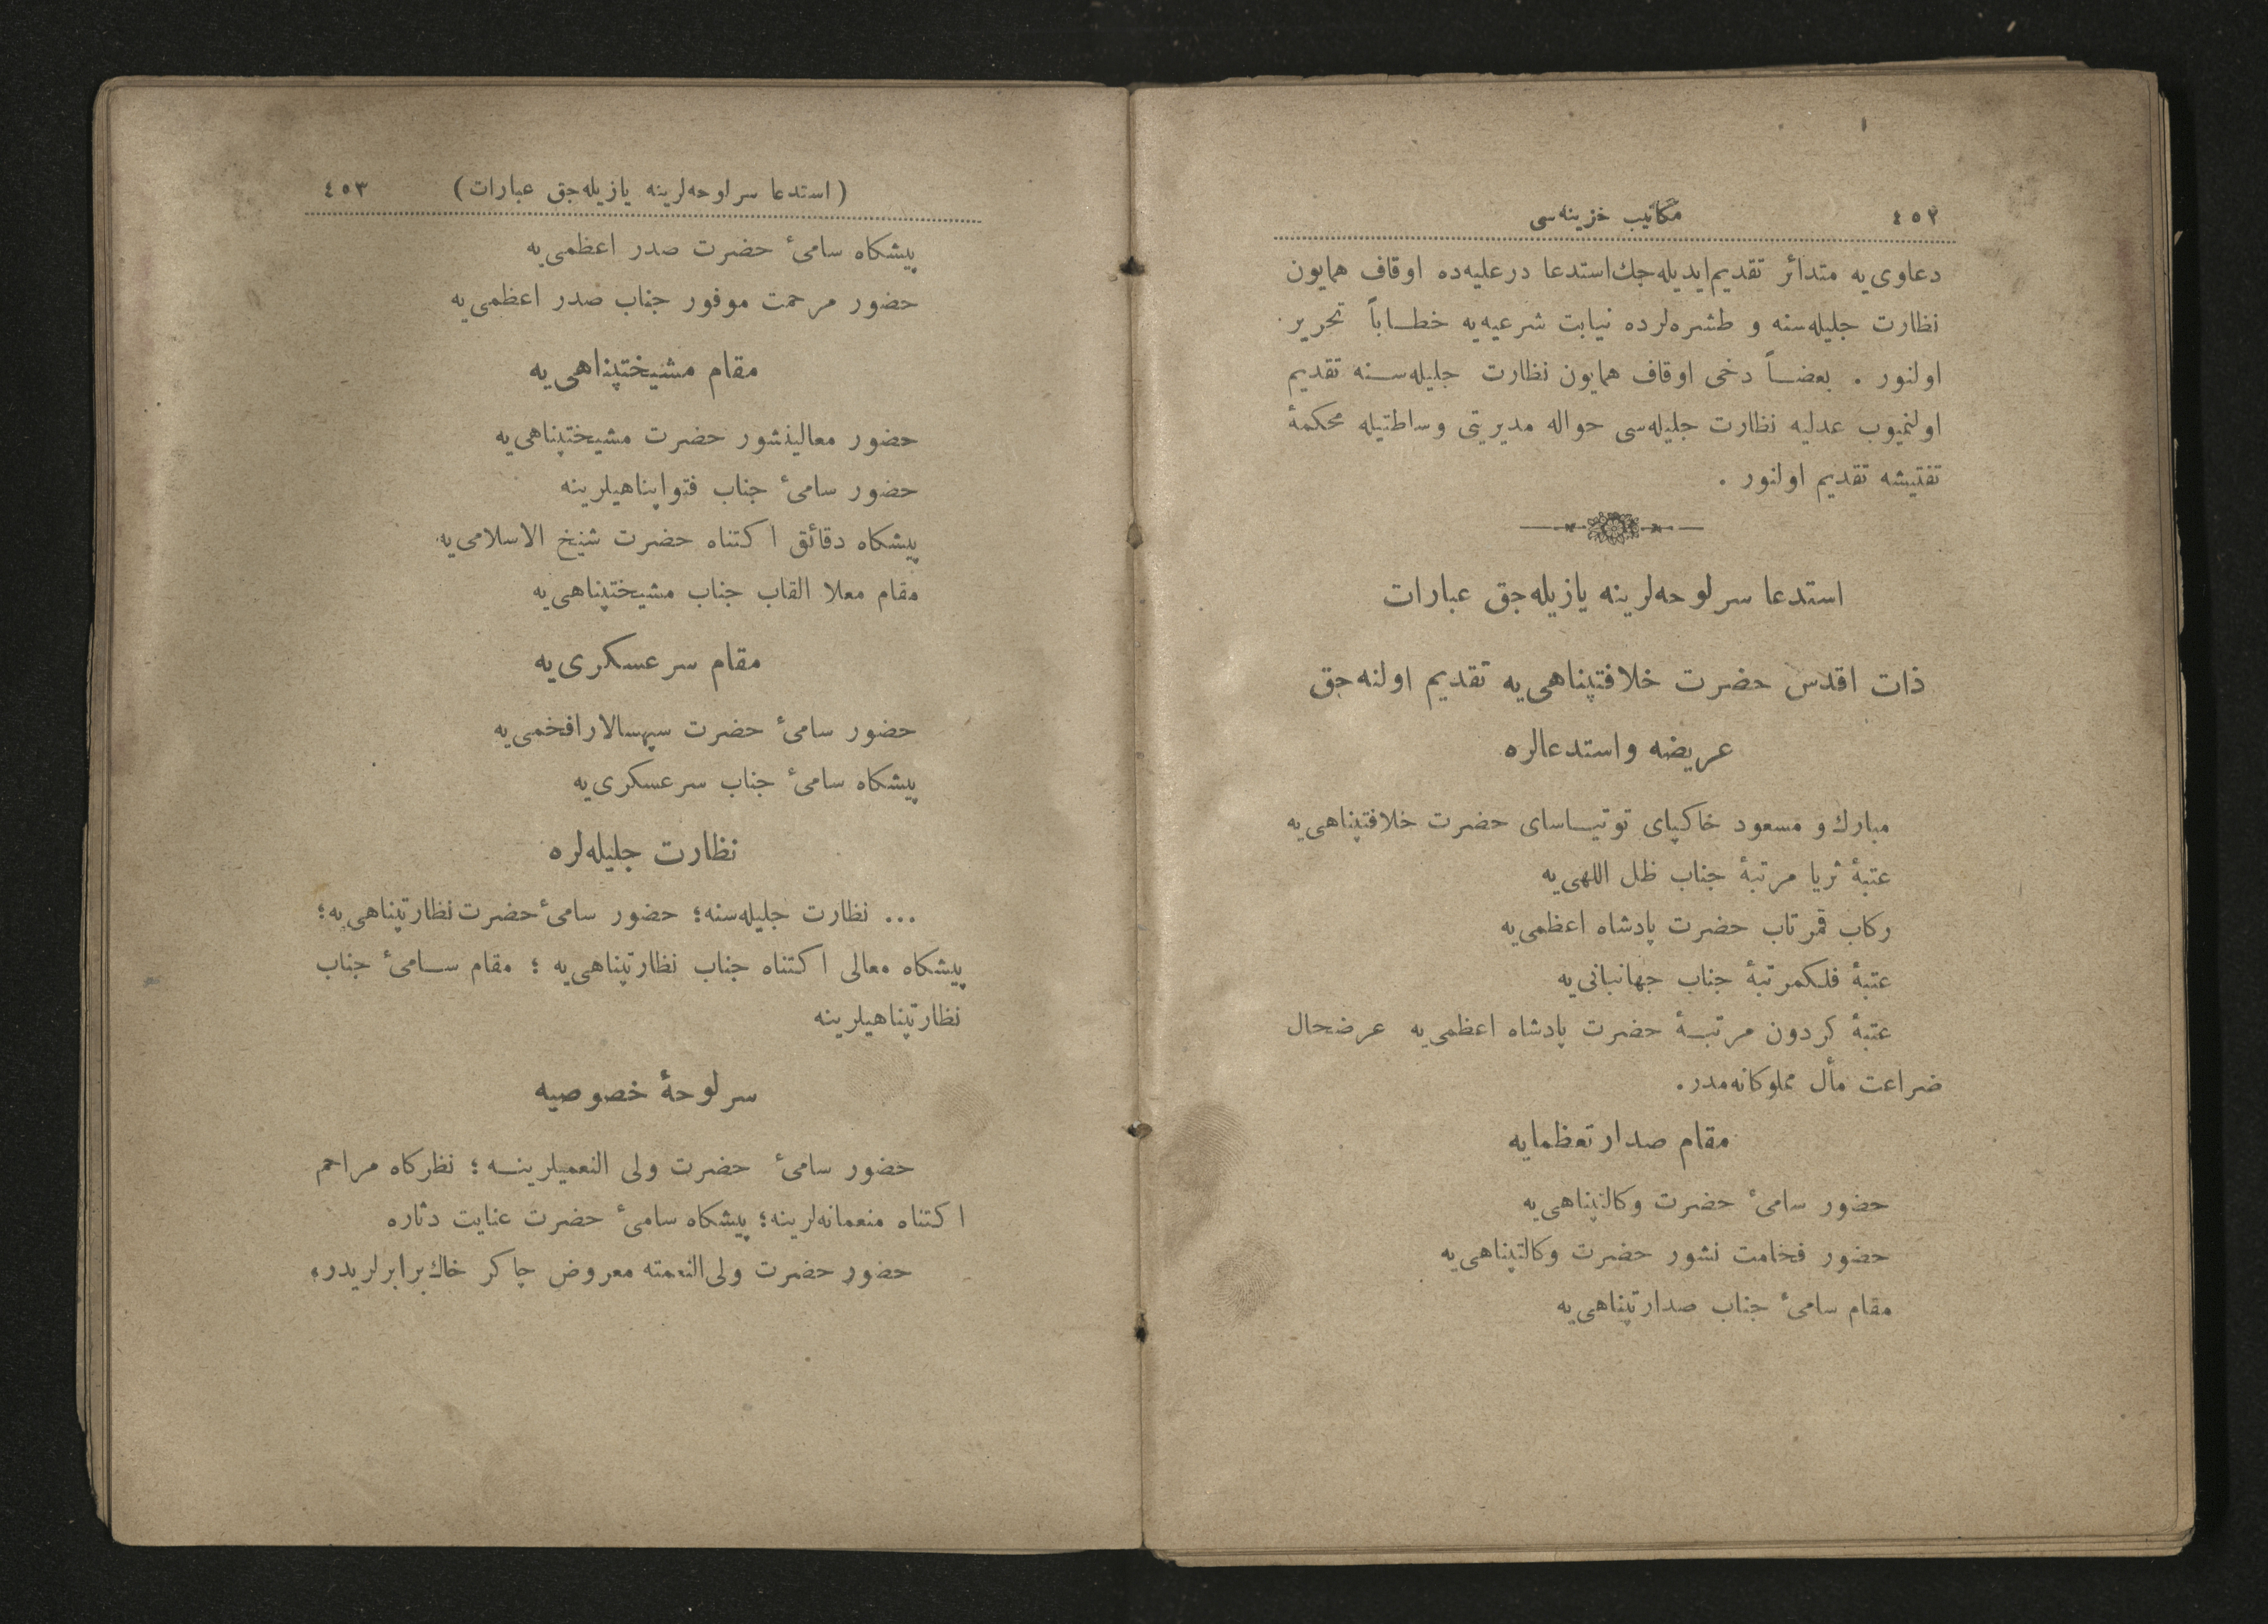 ٤٥٢ مكاتيب خزينه‌سى
دعاوى‌يه متدائر تقديم ايديله‌جك استدعا درعليه‌ده اوقاف همايون
نظارت جليله‌سنه و طشره‌لرده نيابت شرعيه‌يه خطاباً تحرير
اولنور . بعضاً دخى اوقاف همايون نظارت جليله‌سنه تقديم
اولنميوب عدليه نظارت جليله‌سى حواله مديريتى وساطتيله محكمۀ
تفتيشه تقديم اولنور .
استدعا سرلوحه‌لرينه يازيله‌جق عبارات
ذات اقدس حضرت خلافتپناهى‌يه تقديم اولنه‌جق
عريضه واستدعالره
مبارك و مسعود خاكپاى توتياساى حضرت خلافتپناهى‌يه
عتبۀ ثريا مرتبۀ جناب ظل اللهى‌يه
ركاب قمرتاب حضرت پادشاه اعظمى‌يه
عتبۀ فلكمرتبۀ جناب جهانبانى‌يه
عتبۀ كردون مرتبۀ حضرت پادشاه اعظمى‌يه عرضحال
ضراعت مأل مملوكانه‌مدر.
مقام صدارتعظمايه
حضور سامئ حضرت وكالتپناهى‌يه
حضور فخامت نشور حضرت وكالتپناهى‌يه
مقام سامئ جناب صدارتپناهى‌يه
(استدعا سرلوحه‌لرينه يازيله‌جق عبارات) ٤٥٣
پيشكاه سامئ حضرت صدر اعظمى‌يه
حضور مرحمت موفور جناب صدر اعظمى‌يه
مقام مشيختپناهى‌يه
حضور معاليذشور حضرت مشيختپناهى‌يه
حضور سامئ جناب فتواپناهيلرينه
پيشكاه دقائق اكتناه حضرت شيخ الاسلامى‌يه
مقام معلا القاب جناب مشيختپناهى‌يه
مقام سرعسكرى‌يه
حضور سامئ حضرت سپهسالار افخمى‌يه
پيشكاه سامئ جناب سرعسكرى‌يه
نظارت جليله‌لره
... نظارت جليله‌سنه؛ حضور سامئ حضرت نظارتپناهى‌يه؛
پيشكاه معالى اكتناه جناب نظارتپناهى‌يه ؛ مقام سامئ جناب
نظارتپناهيلرينه
سرلوحۀ خصوصيه
حضور سامئ حضرت ولى النعميلرينه ؛ نظركاه مراحم
اكتناه منعمانه‌لرينه؛ پيشكاه سامئ حضرت عنايت دثاره
حضور حضرت ولى‌النعمته معروض چاكر خاك‌برابرلريدر،